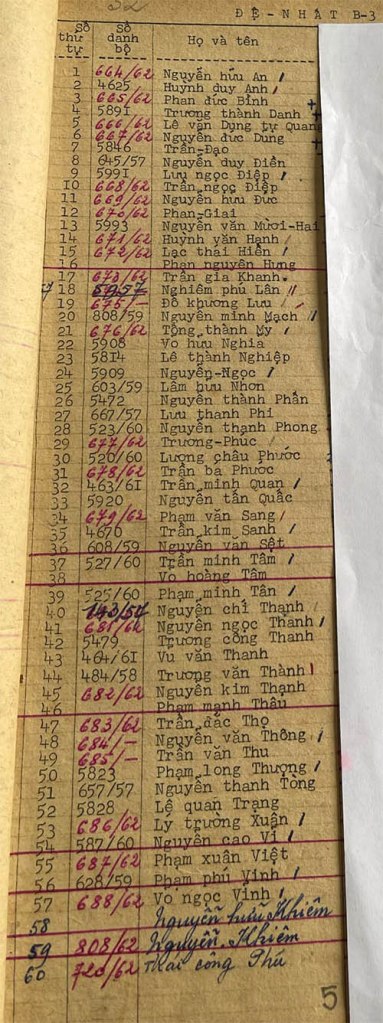 ĐỆ-NHẤT B-3
Số thứ tự Số danh bộ Họ và tên
1 664/62 Nguyễn hữu An
2 4625 Huỳnh duy Anh
3 665/62 Phan đức Bỉnh
4 5891 Trương thành Danh
5 666/62 Lê văn Dụng tự Quang
6 667/62 Nguyễn đức Dũng
7 5846 Trần-Đạo
8 645/57 Nguyễn duy Điền
9 5991 Lưu ngọc Điệp
10 668/62 Trần ngọc Điệp
11 669/62 Nguyễn hữu Đức
12 670/62 Phan-Giai
13 5993 Nguyễn văn Mười-Hai
14 671/62 Huỳnh văn Hạnh
15 672/62 Lạc thái Hiền
16 Phan nguyên Hưng
17 673/62 Trần gia Khanh
18 5957 Nghiêm phú Lân
19 675/- Đỗ khương Lưu
20 808/59 Nguyễn minh Mạch
21 676/62 Tống thành Mỹ
22 5908 Võ hữu Nghĩa
23 5814 Lê thành Nghiệp
24 5909 Nguyễn-Ngọc
25 603/59 Lâm hữu Nhơn
26 5472 Nguyễn thành Phần
27 667/57 Lưu thanh Phi
28 523/60 Nguyễn thanh Phong
29 677/62 Trương-Phúc
30 520/60 Lương châu Phước
31 678/62 Trần bá Phước
32 463/61 Trần minh Quan
33 5920 Nguyễn tấn Quắc
34 679/62 Phạm văn Sang
35 4670 Trần kim Sanh
36 608/59 Nguyễn văn Sệt
37 527/60 Trần minh Tâm
38 Võ hoàng Tâm
39 525/60 Phạm minh Tân
40 Nguyễn chí Thanh
41 681/62 Nguyễn ngọc Thanh
42 5479 Trương công Thanh
43 464/61 Vũ văn Thanh
44 484/58 Trương văn Thành
45 682/62 Nguyễn kim Thạnh
46 Phạm mạnh Thâu
47 683/62 Trần đắc Thọ
48 684/- Nguyễn văn Thông
49 685/- Trần văn Thu
50 5823 Phạm long Thượng
51 657/57 Nguyễn thanh Tòng
52 5828 Lê quan Trạng
53 686/62 Lý trường Xuân
54 587/60 Nguyễn cao Vi
55 687/62 Phạm xuân Việt
56 628/59 Phạm phú Vinh
57 688/62 Võ ngọc Vinh
58 Nguyễn hữu Khiêm
59 808/62 Nguyễn Khiêm
60 Thái công Phú
5